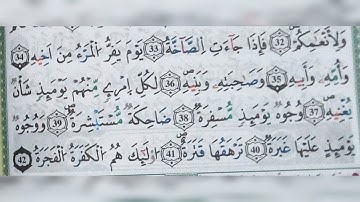 وَلِأَنْعَٰمِكُمْ ٣٢ فَإِذَا جَآءَتِ اِ۬لصَّآخَّةُ ٣٣ يَوْمَ يَفِرُّ اُ۬لْمَرْءُ مِنَ اَخِيهِ ٣٤
وَأُمِّهِۦ وَأَبِيهِ ٣٥ وَصَٰحِبَتِهِۦ وَبَنِيهِ ٣٦ لِكُلِّ اِ۪مْرِےٕٖ مِّنْهُمْ يَوْمَئِذٖ شَأْنٞ
يُغْنِيهِ ٣٧ وُجُوهٞ يَوْمَئِذٖ مُّسْفِرَةٞ ٣٨ ضَاحِكَةٞ مُّسْتَبْشِرَةٞ ٣٩ وَوُجُوهٞ
يَوْمَئِذٍ عَلَيْهَا غَبَرَةٞ ٤٠ تَرْهَقُهَا قَتَرَةٌ ٤١ ا۟وْلَٰٓئِكَ هُمُ اُ۬لْكَفَرَةُ اُ۬لْفَجَرَةُ ٤٢